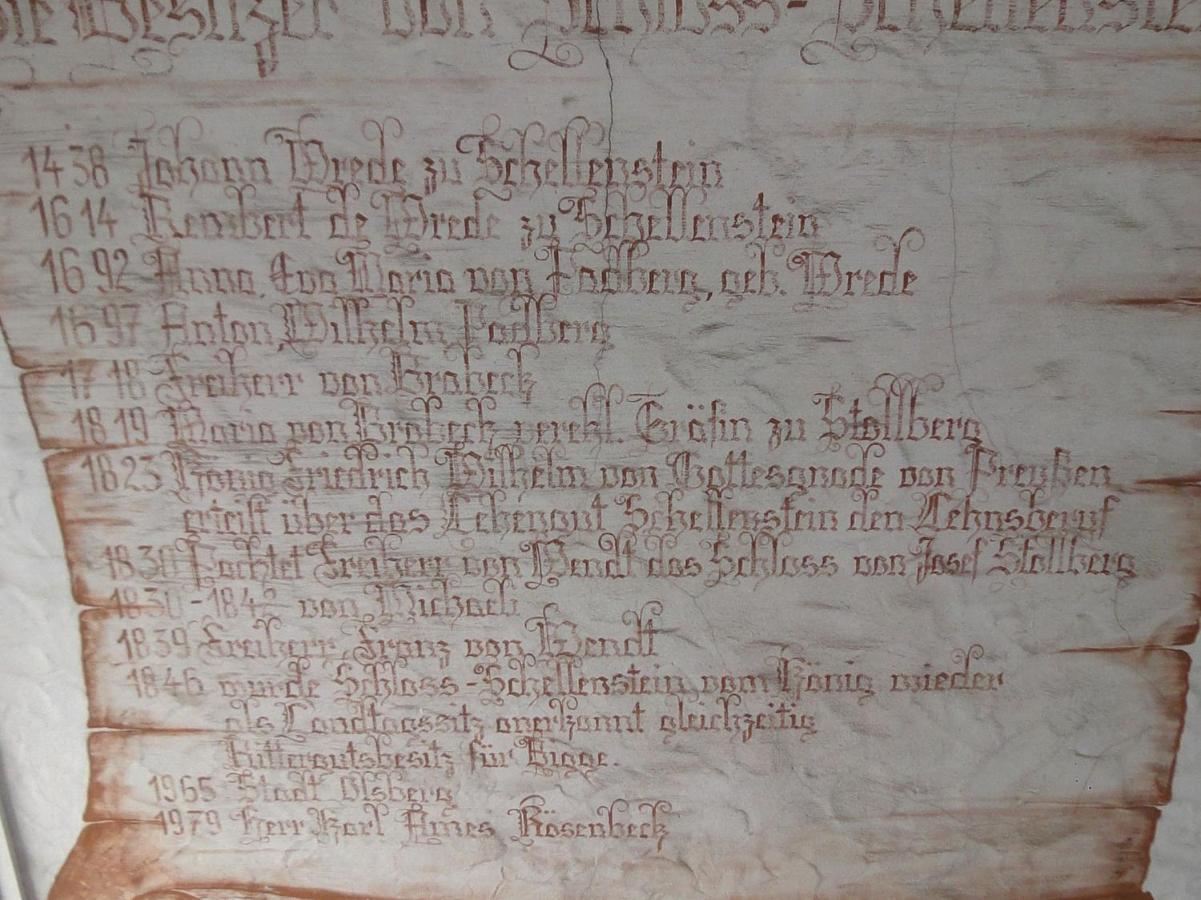 Die Besitzer von Schloss-Schellenste
1438 Johann Wrede zu Schellenstein
1614 Rembert de Wrede zu Schellenstein
1692 Anna Eva Maria von Padberg, geb. Wrede
1697 Anton Wilhelm Padberg
1718 Freiherr von Brabeck
1819 Maria von Brabeck verehl. Gräfin zu Stollberg
1823 König Friedrich Wilhelm von Gottesgnade von Preußen
erteilt über das Lehengut Schellenstein den Lehnsberuf
1830 Pachtet Freiherr von Wendt das Schloss von Josef Stollberg
1830-1842 von Michaeli
1839 Freiherr Franz von Wendt
1846 wurde Schloss-Schellenstein vom König wieder
als Landtagssitz anerkannt gleichzeitig
Rittergutsbesitz für Bigge.
1965 Stadt Olsberg
1979 Herr Karl Rösenbeck